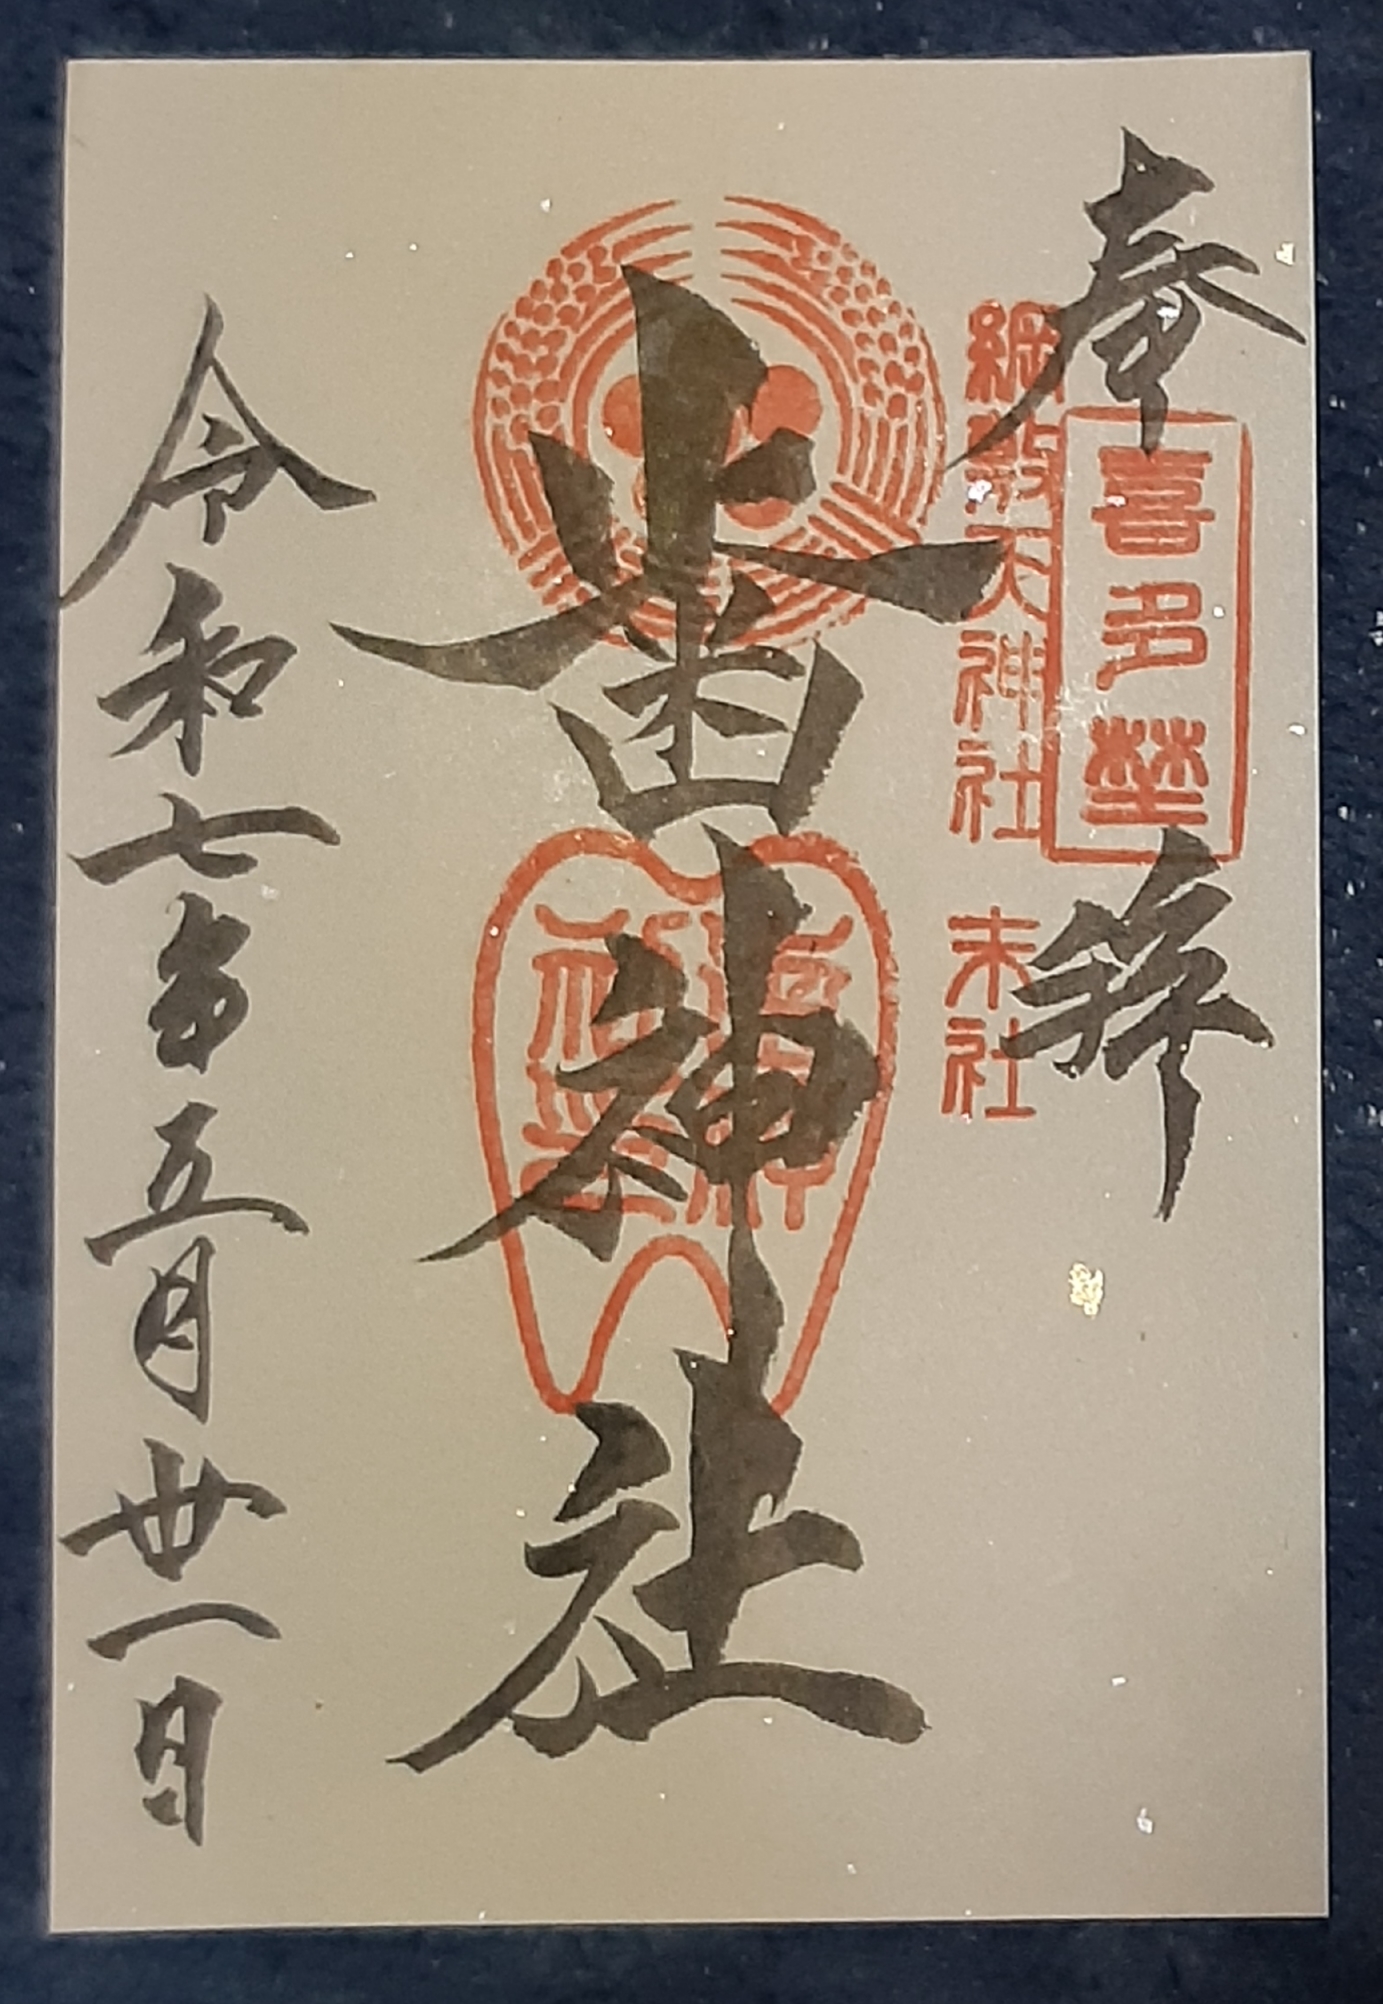 奉拝
喜多埜
綱敷天神社 末社
歯神社
歯神社
令和七年五月廿一日